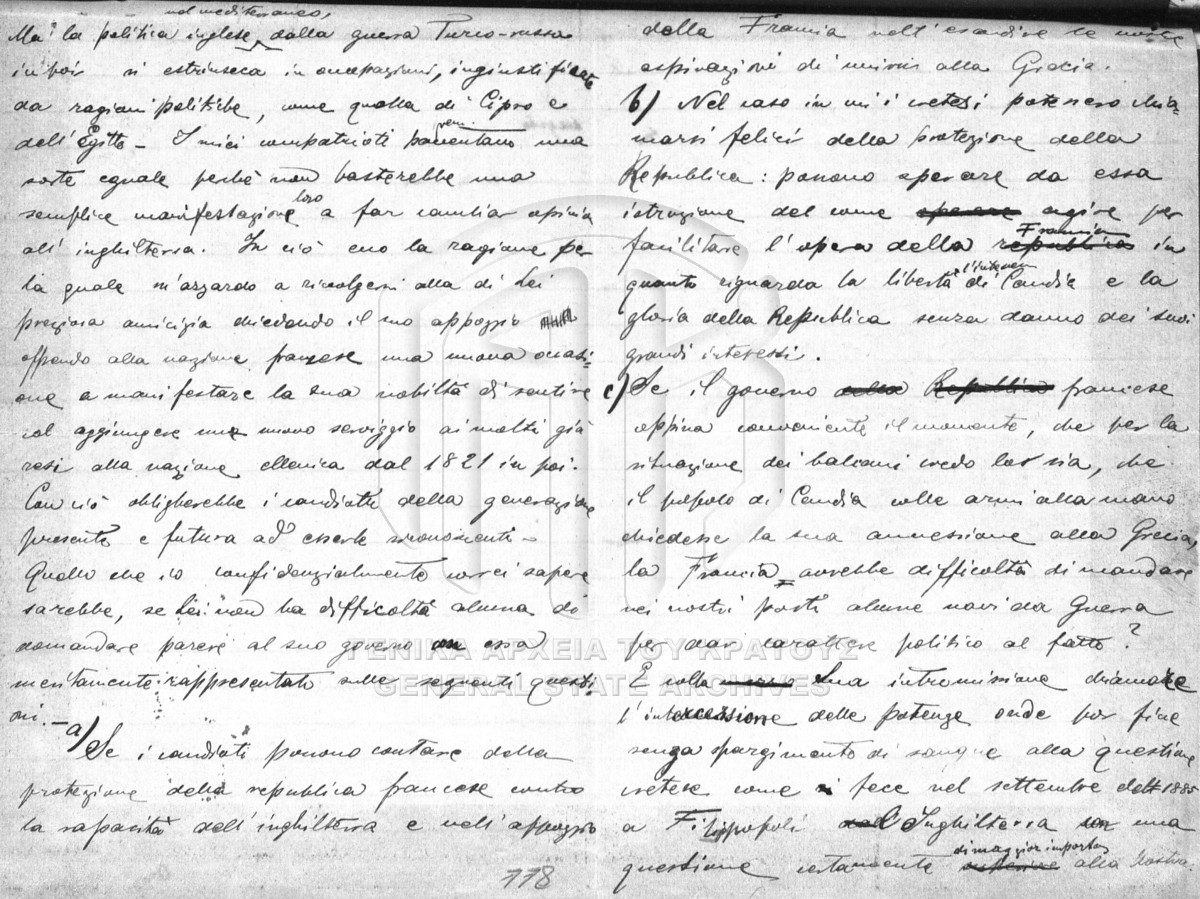 nel mediterraneo,
Ma la politica inglese, dalla guerra Turco-russa
in poi si estrinseca in occupazioni, ingiustificate
da ragioni politiche, come quella di Cipro e
dell'Egitto - I miei compatriotti paventano una
sorte eguale perchè non basterebbe una
semplice manifestazione loro a far cambiar opinion
all'inghilterra. In ciò ecco la ragione per
la quale m'azzardo a rivolgermi alla di Lei
preziosa amicizia chiedendo il suo appoggio
offrendo alla nazione francese una nuova occasi=
one a manifestare la sua nobiltà di sentire
col aggiungere un nuovo serviggio ai molti già
resi alla nazione ellenica dal 1821 in poi.
Con ciò obligherebbe i candiotti della generazione
presente e futura ad esserle riconoscenti -
Quello che io confidenzialmente vorrei sapere
sarebbe, se Lei non ha difficoltà alcuna di
domandare parere al suo governo
meritamente rappresentato sulle seguenti questi
oni. -
a) Se i candiotti possono contare della
protezione della republica francese contro
la rapacità dell'inghilterra e nell'appoggio
della Francia nell'esaudire le nostre
aspirazioni di unione alla Grecia.
b) Nel caso in cui i cretesi potessero chia=
marsi felici della protezione della
Republica: possono sperare da essa
istruzione del come sperare agire per
Francia
facilitare l'opera della republica in
quanto riguarda la libertà di Candia e la
gloria della Republica senza danno dei suoi
grandi interessi.
c) Se il governo della Republica francese
oppina conveniente il momento, che per la
situazione dei balcani credo lo sia, che
il popolo di Candia colle armi alla mano
chiedesse la sua annessione alla Grecia,
la Francia avrebbe difficoltà di mandare
nei nostri porti alcune navi da Guerra
per dar carattere politico al fatto?
E colla Sua intromissione chiamare
l'intercessione delle potenze onde por fine
senza spargimento di sangue alla questione
cretese come si fece nel settembre dell 1885
a Filippopoli Inghilterra una
di maggior importanza
questione certamente alla nostra.
118
ΓΕΝΙΚΑ ΑΡΧΕΙΑ ΤΟΥ ΚΡΑΤΟΥΣ
GENERAL STATE ARCHIVES